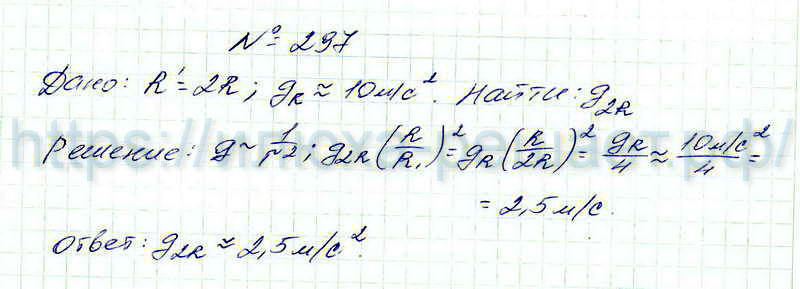 № 297
Дано: R' = 2R; gR ≈ 10 м/с². Найти: g2R
Решение: g ~ 1/r²; g2R (R/R₁)² = gR (R/2R)² = gR/4 ≈ 10 м/с²/4 =
= 2,5 м/с.
Ответ: g2R ≈ 2,5 м/с².